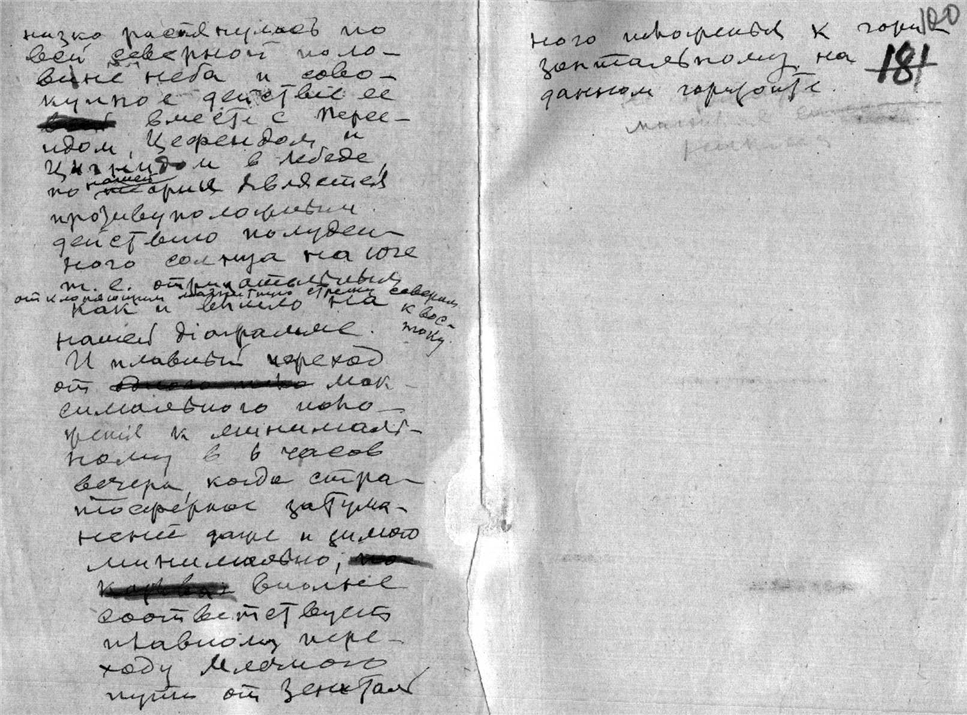 низко растянулась по
всей северной поло-
вине неба и сово-
купное действіе ее
вместе с Персе-
идом, Цефеидом и
Цигнидом в Лебеде,
по нашей теории является
противуположным
действию полуден-
ного солнца на юге
т. е. отрицательным
отклоняющим магнитную стрелку северным к вос-
току.
как и вышло на
нашей діаграмме.
И плавный переход
от мак-
симального поло-
жения к минималь-
ному в 6 часов
вечера, когда стра-
тосферное затума-
нение даже и зимою
минимально,
вполне
соответствует
плавному пере-
ходу Млечного
пути от зенитал
100
181
ного положенья к гори
зонтальному на
данном горизонте.